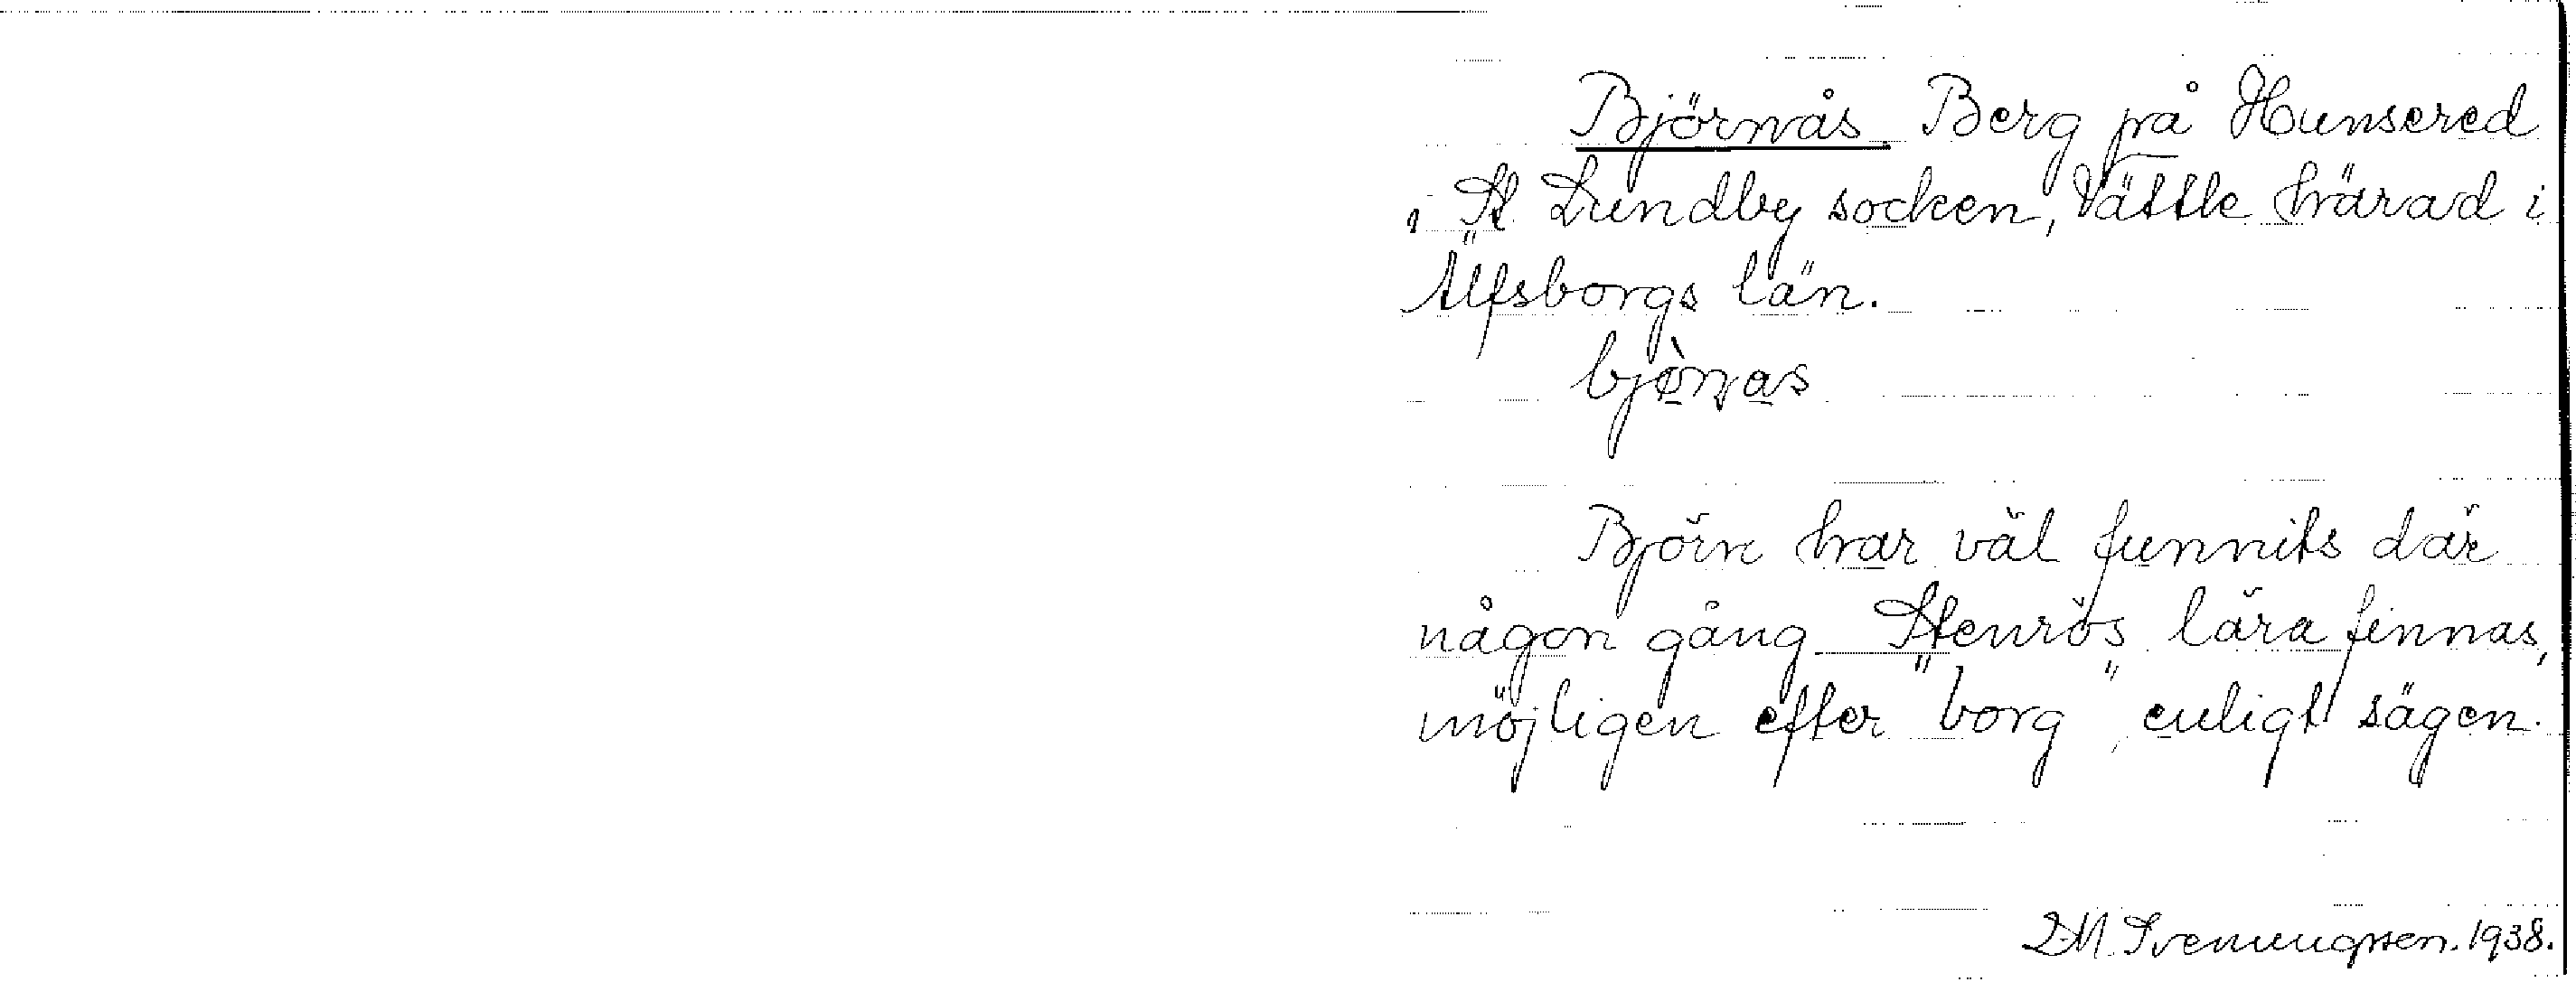 Björnås. Berg på Hunsered
i St Lundby socken, Vättle härad i
Älfsborgs län.
bjòṇas
Björn har väl funnits där
någon gång. Stenrös lära finnas,
möjligen efter "borg", enligt sägen.
D.M. Svenungsson. 1938.